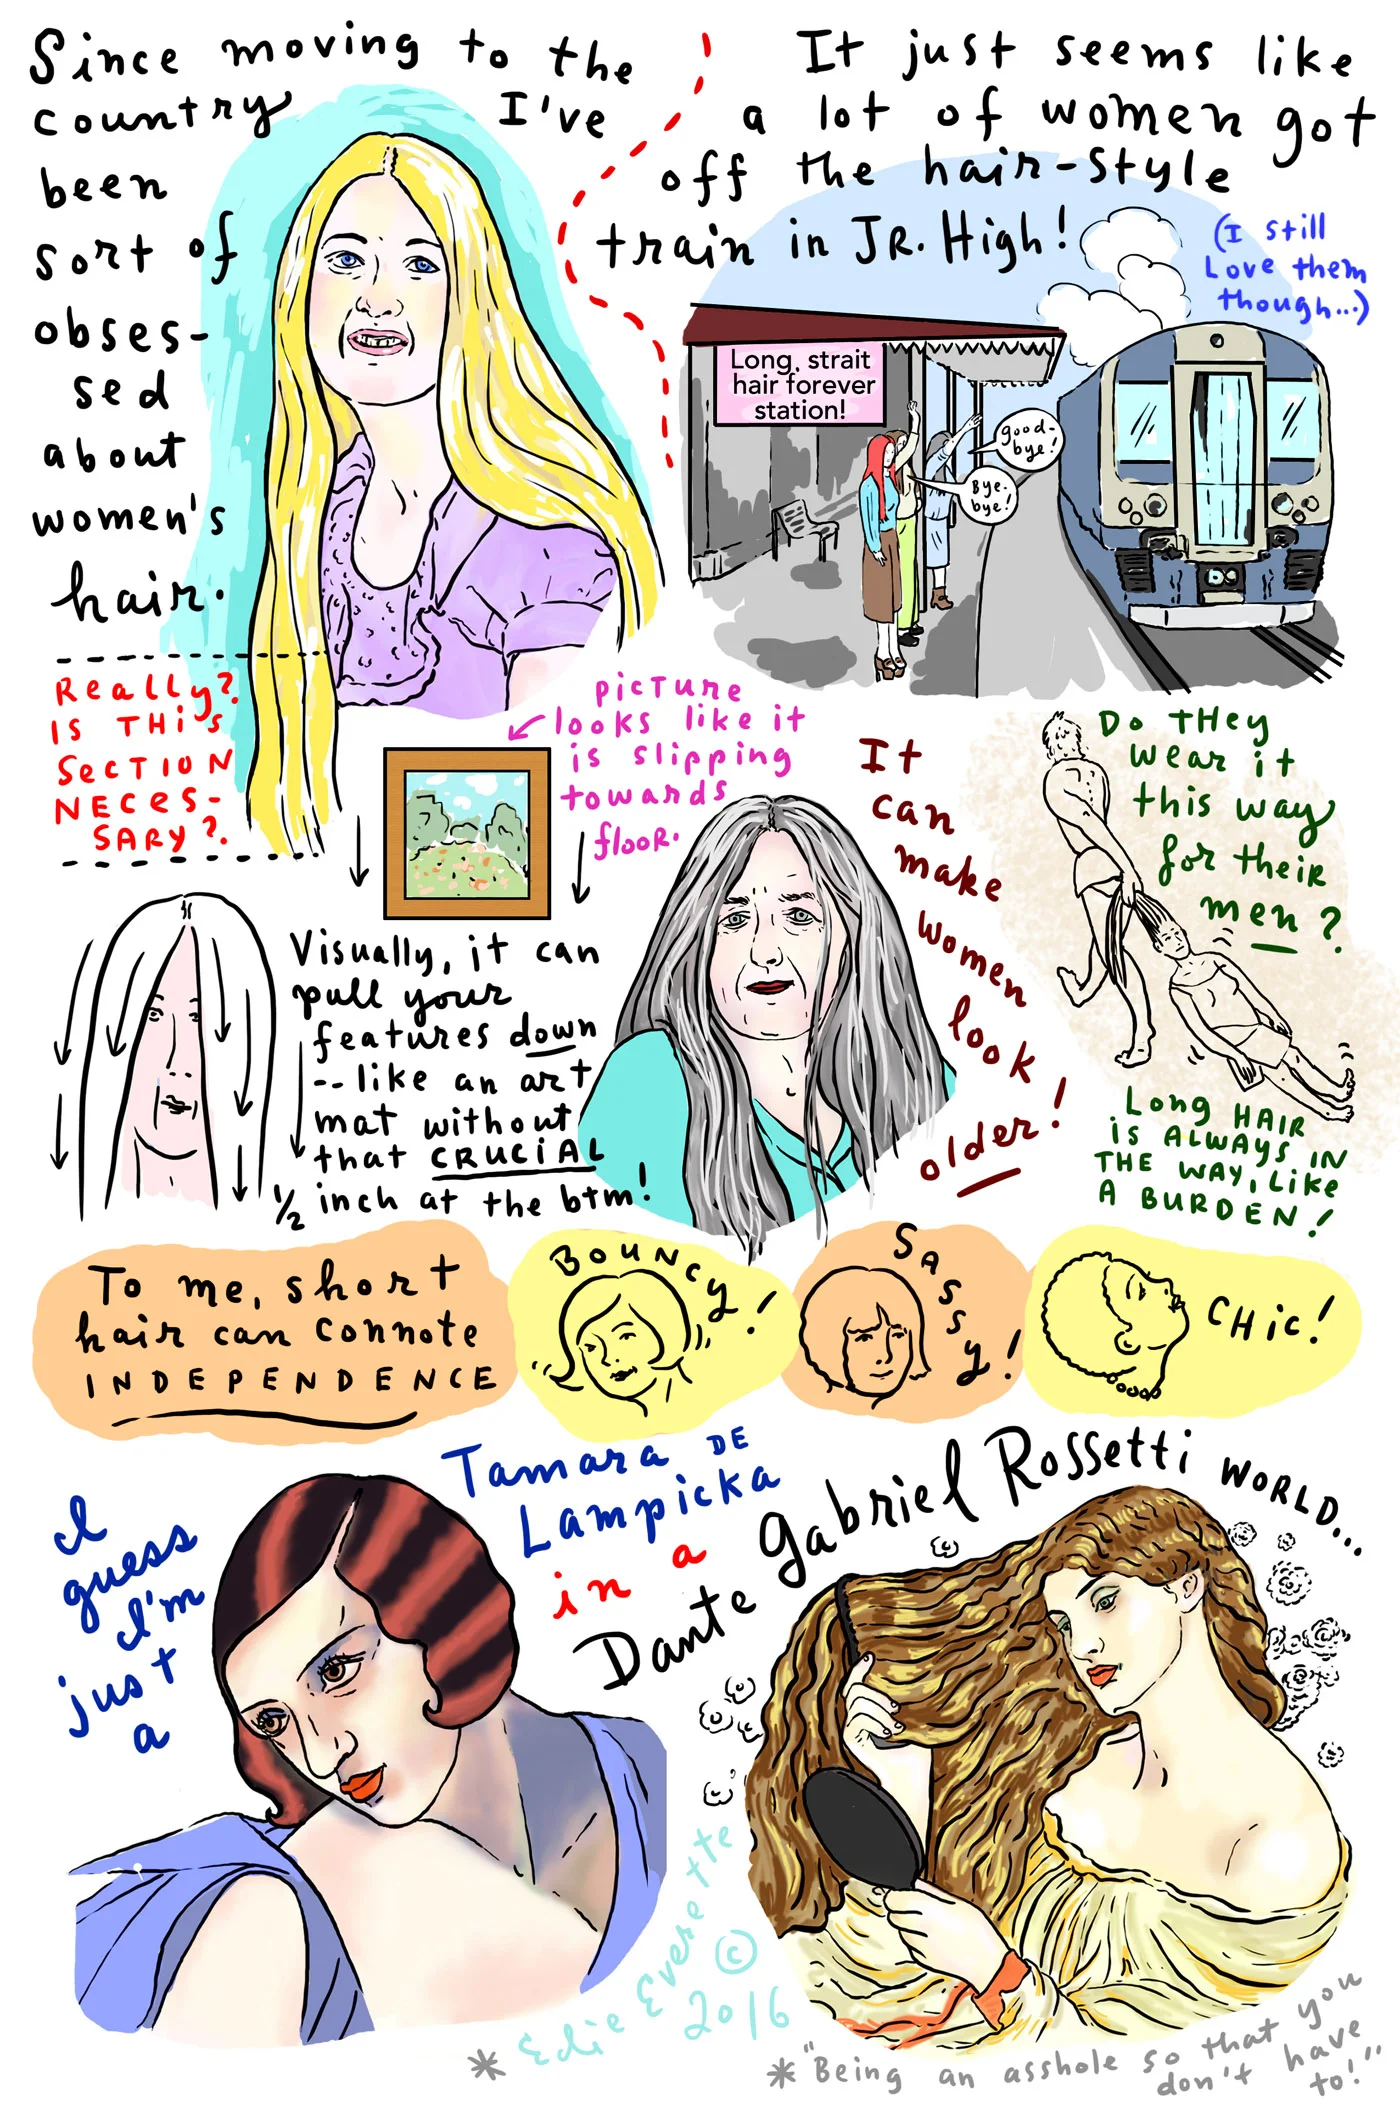 Since moving to the
country I've
been
sort of
obses-
sed
about
women's
hair.
It just seems like
a lot of women got
off the hair-style
train in JR. High!
(I still
Love them
though...)
Long, strait
hair forever
station!
good-
bye!
Bye-
bye!
Really?
Is THis
SECTION
NECES-
SARY?
picture
looks like it
is slipping
towards
floor.
Visually, it can
pull your
features down
-- like an art
mat without
that CRUCIAL
1/2 inch at the btm!
It
can
make
women
look
older!
Do THey
wear it
this way
for their
men?
Long HAIR
is ALWAYS IN
THE WAY, Like
A BURDEN!
To me, short
hair can connote
INDEPENDENCE
BOUNCY!
SASSY!
CHiC!
I
guess
I'm
just
a
Tamara DE
Lampicka
in a
Dante Gabriel Rossetti WORLD...
* Edie Everette
© 2016
* "Being an asshole so that you
don't have
to!"